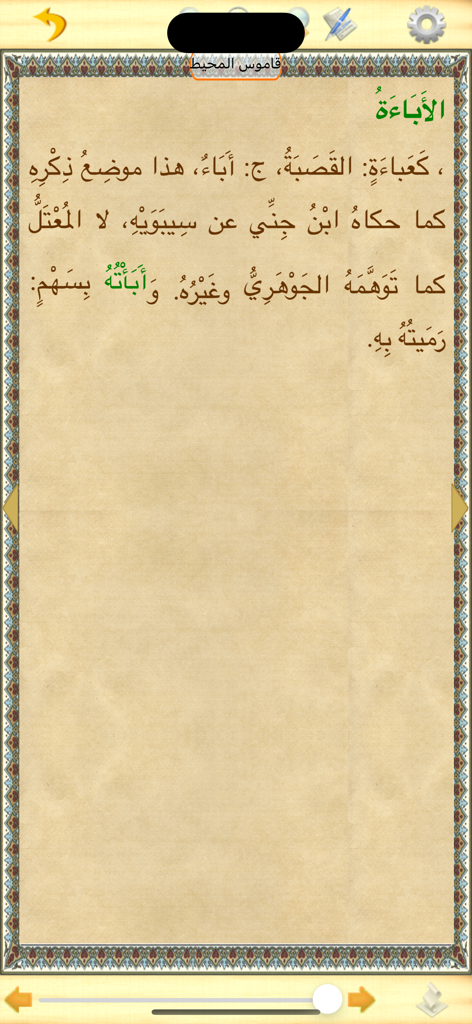 قاموس المحيط
الأَبَاءَةُ
، كَعَباءَةٍ: القَصَبَةُ، ج: أَبَاءٌ، هذا موضِعُ ذِكْرِهِ
كما حكاهُ ابْنُ جِنِّي عن سِيبَوَيْهِ، لا المُعْتَلُّ
كما تَوَهَّمَهُ الجَوْهَرِيُّ وغَيْرُهُ. وَأَبَأْتُهُ بِسَهْمٍ:
رَمَيتُهُ بِهِ.